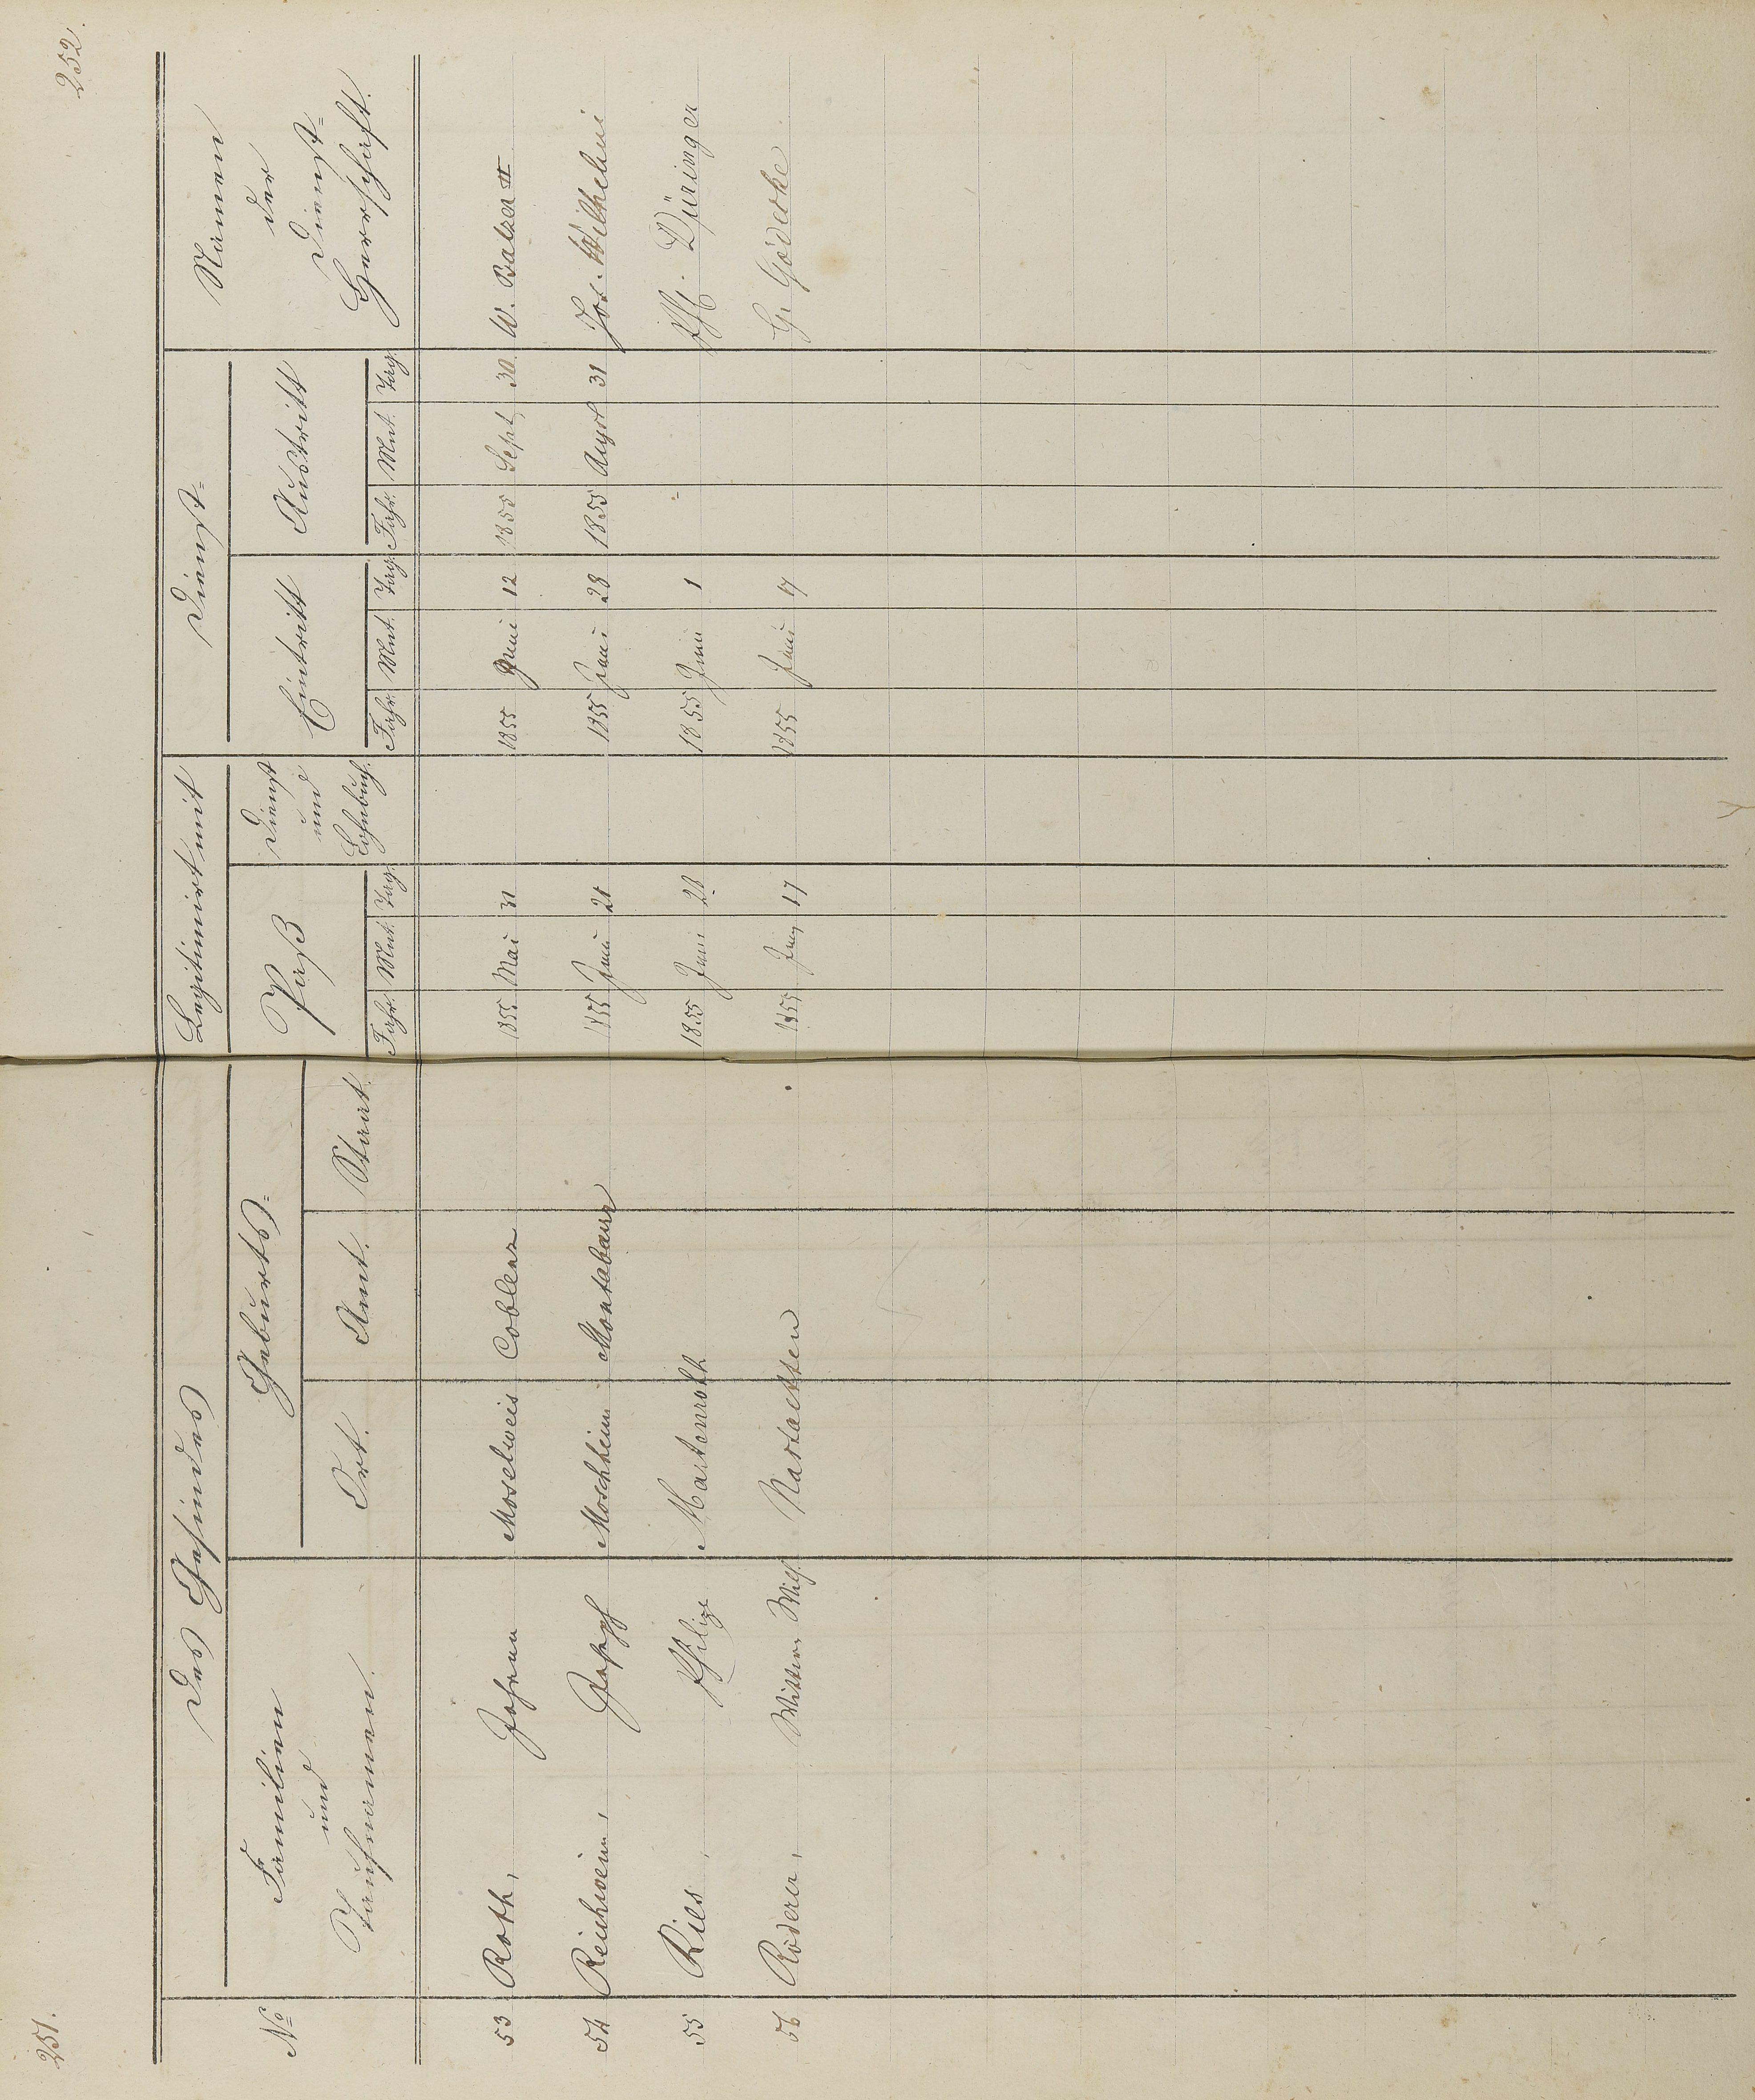 251.
252.
Des Gesindes
Legitimirt mit
Dienst-
Namen der Dienst-Herrschaft.
No
Familien und Taufnamen
Geburts-
Paß
Dienst und Lohnbuch.
Eintritt
Austritt
Ort. Amt. Staat.
Jahr. Mnt. Tag.
Jahr. Mnt. Tag.
Jahr. Mnt. Tag.
53 Roth, Johann Moselweis Coblenz 1855 Mai 31 1855 Juni 12 1855 Sept 30. W. Balzer II
54 Reichwein, Joseph Moschheim Montabaur 1855 Juni 21 1855 Juni 28 1855 Augst 31 Jos. Wilhelmi
55 Ries, Philipp Martenroth 1855 Juni 28. 1855 Juni 1 Ph. Düringer
56 Röderer, Wilh. Nastaetten 1855 Juny 17 1855 Juni 17 G. Gödecke